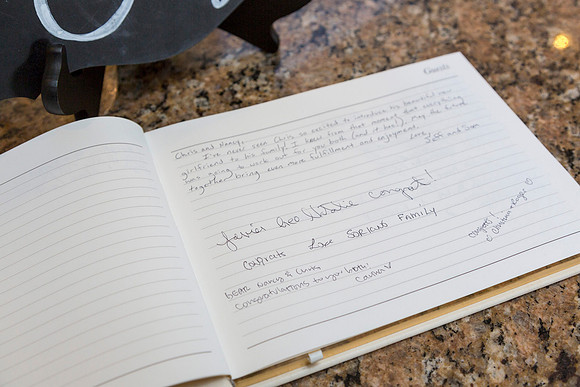 Guests
Chris and Nancy,
I've never seen Chris so excited to introduce his beautiful new
girlfriend to his family! I knew from that moment that everything
was going to work out for you both (and it has!). May the future
together bring even more fulfillment and enjoyment.
Love,
Jeff and Sam
Javier and Natalie congrats!
Congrats Love Soriano Family
Congrats!
Dear Nancy & Chris
Congratulations to you both!
Carina